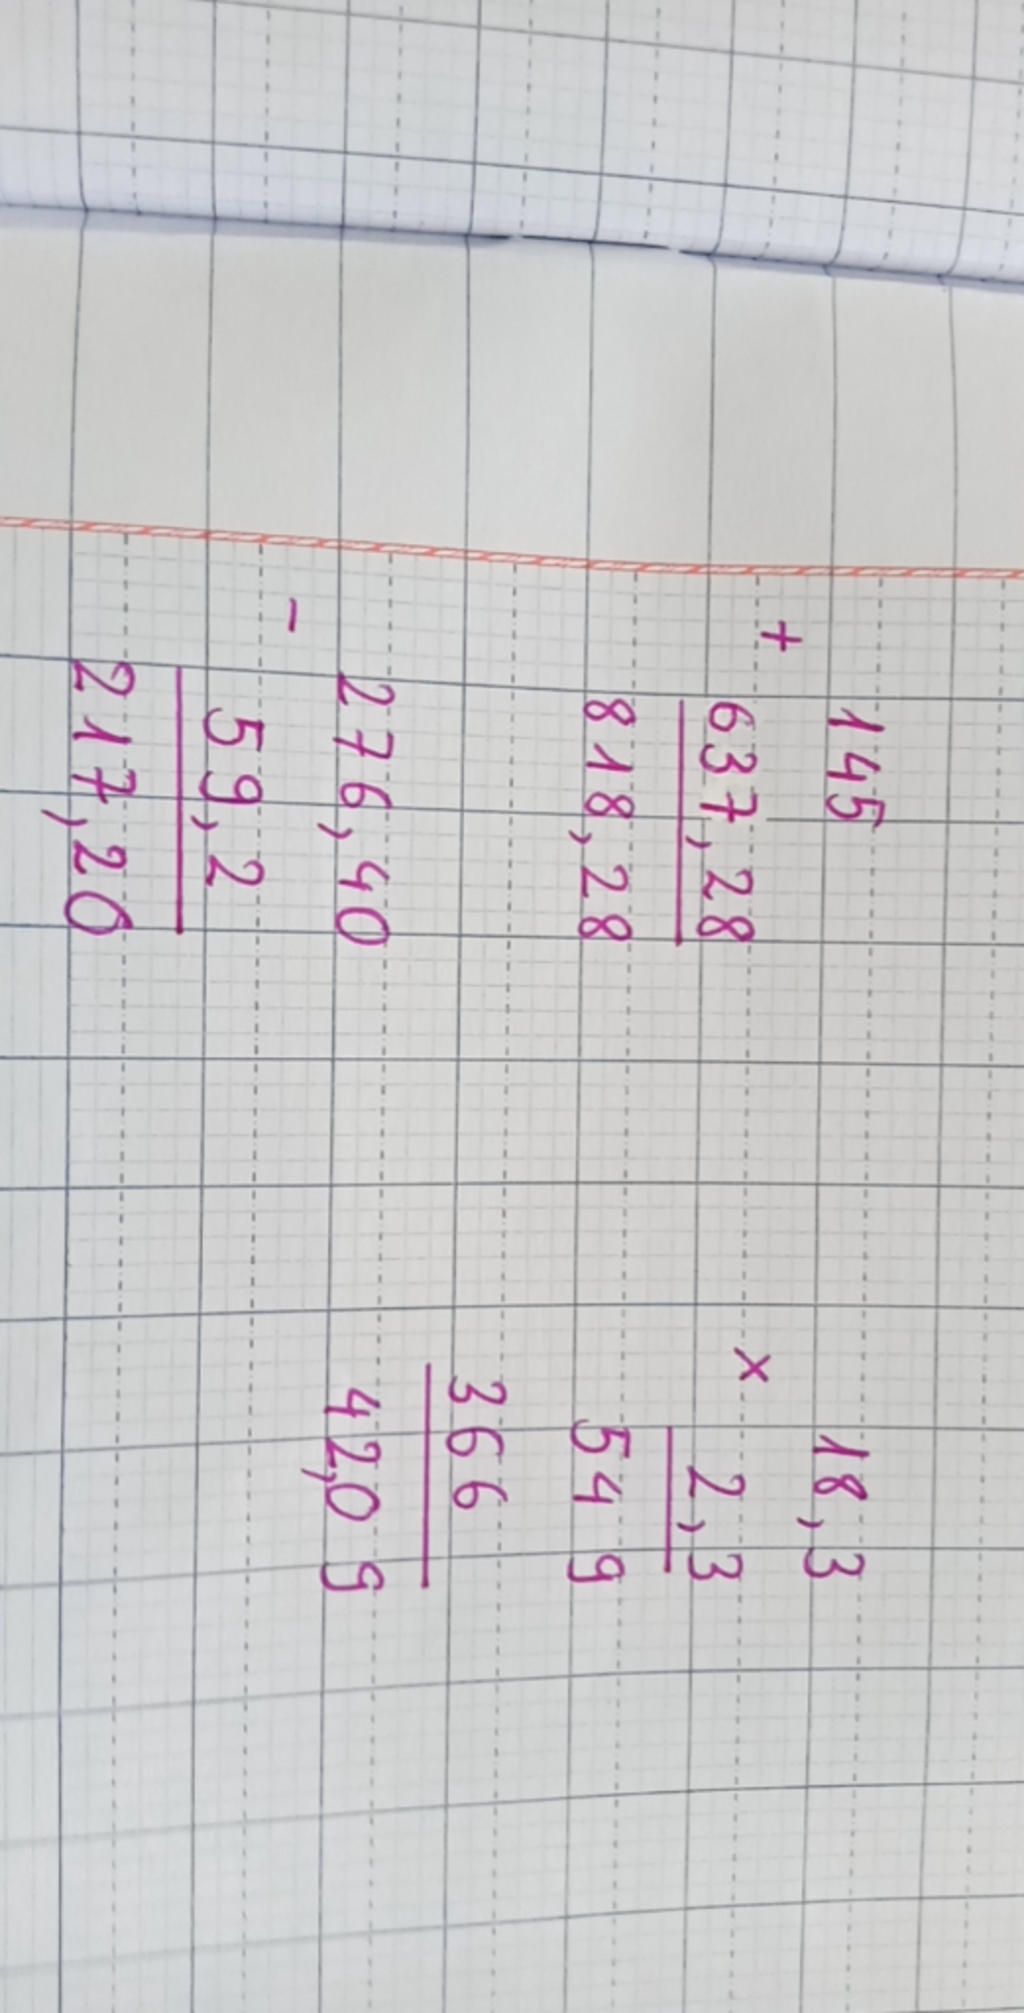 145
+
637,28
818,28
276,40
-
59,2
217,20
18,3
x
2,3
549
366
42,09